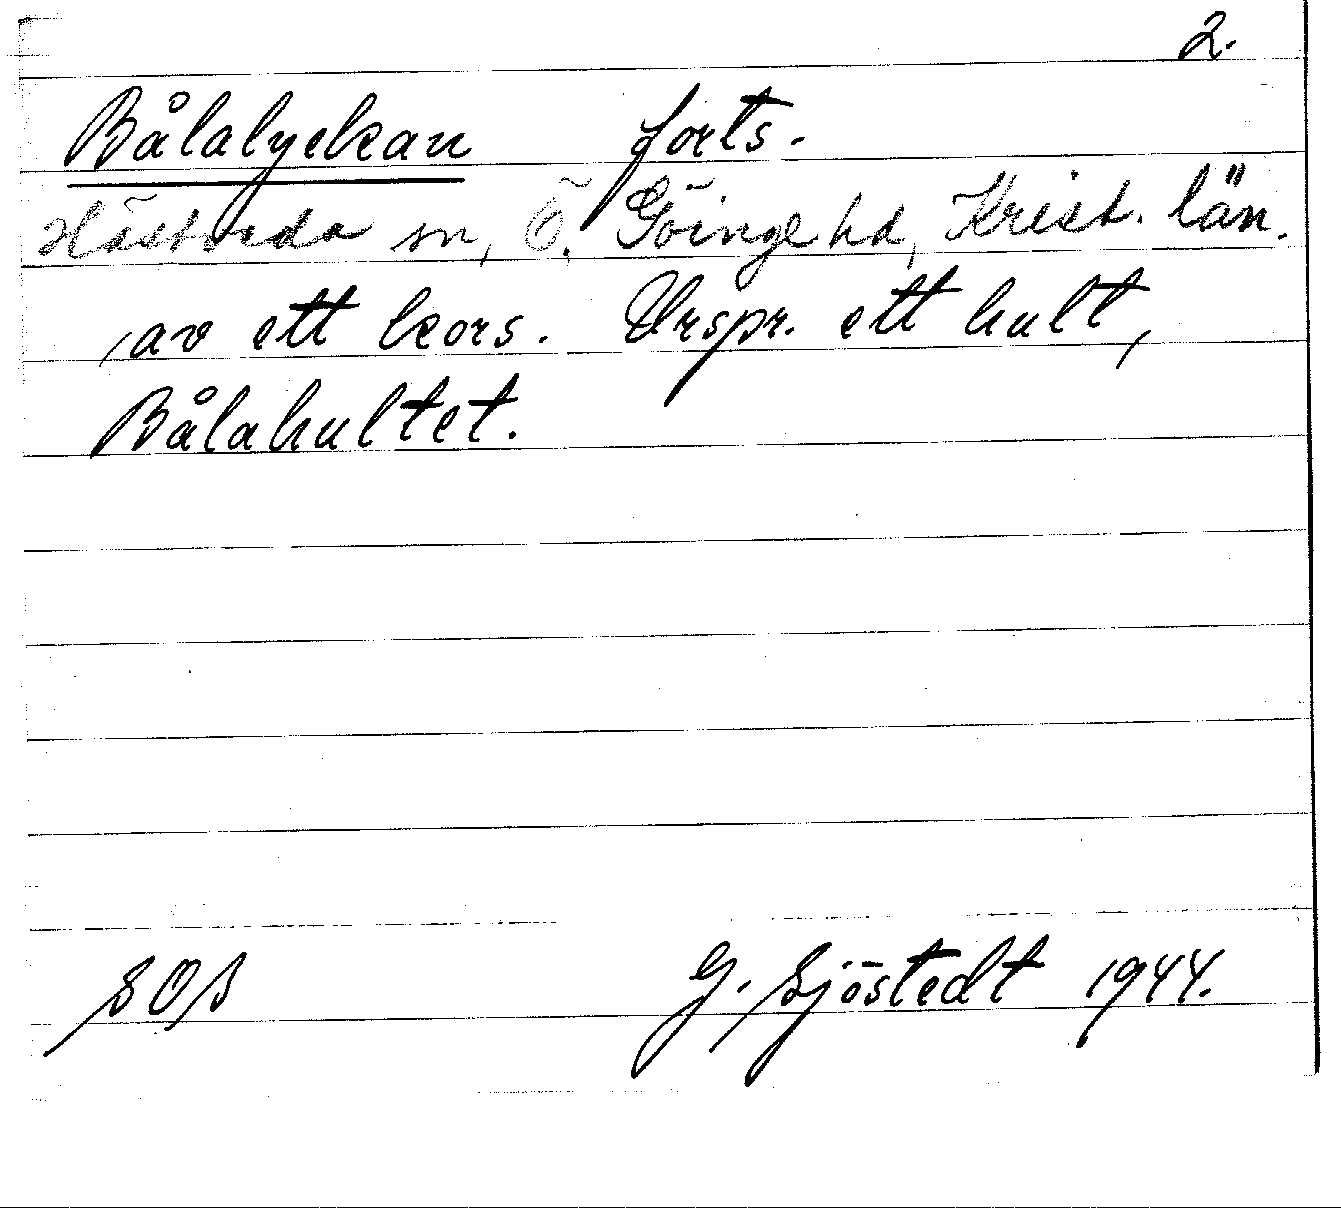 2.
Bålalyckan forts.
Hästveda sn, Ö. Göinge hd, Krist. län.
, av ett kors. Urspr. ett hult,
Bålahultet.
SOS G. Sjöstedt 1944.